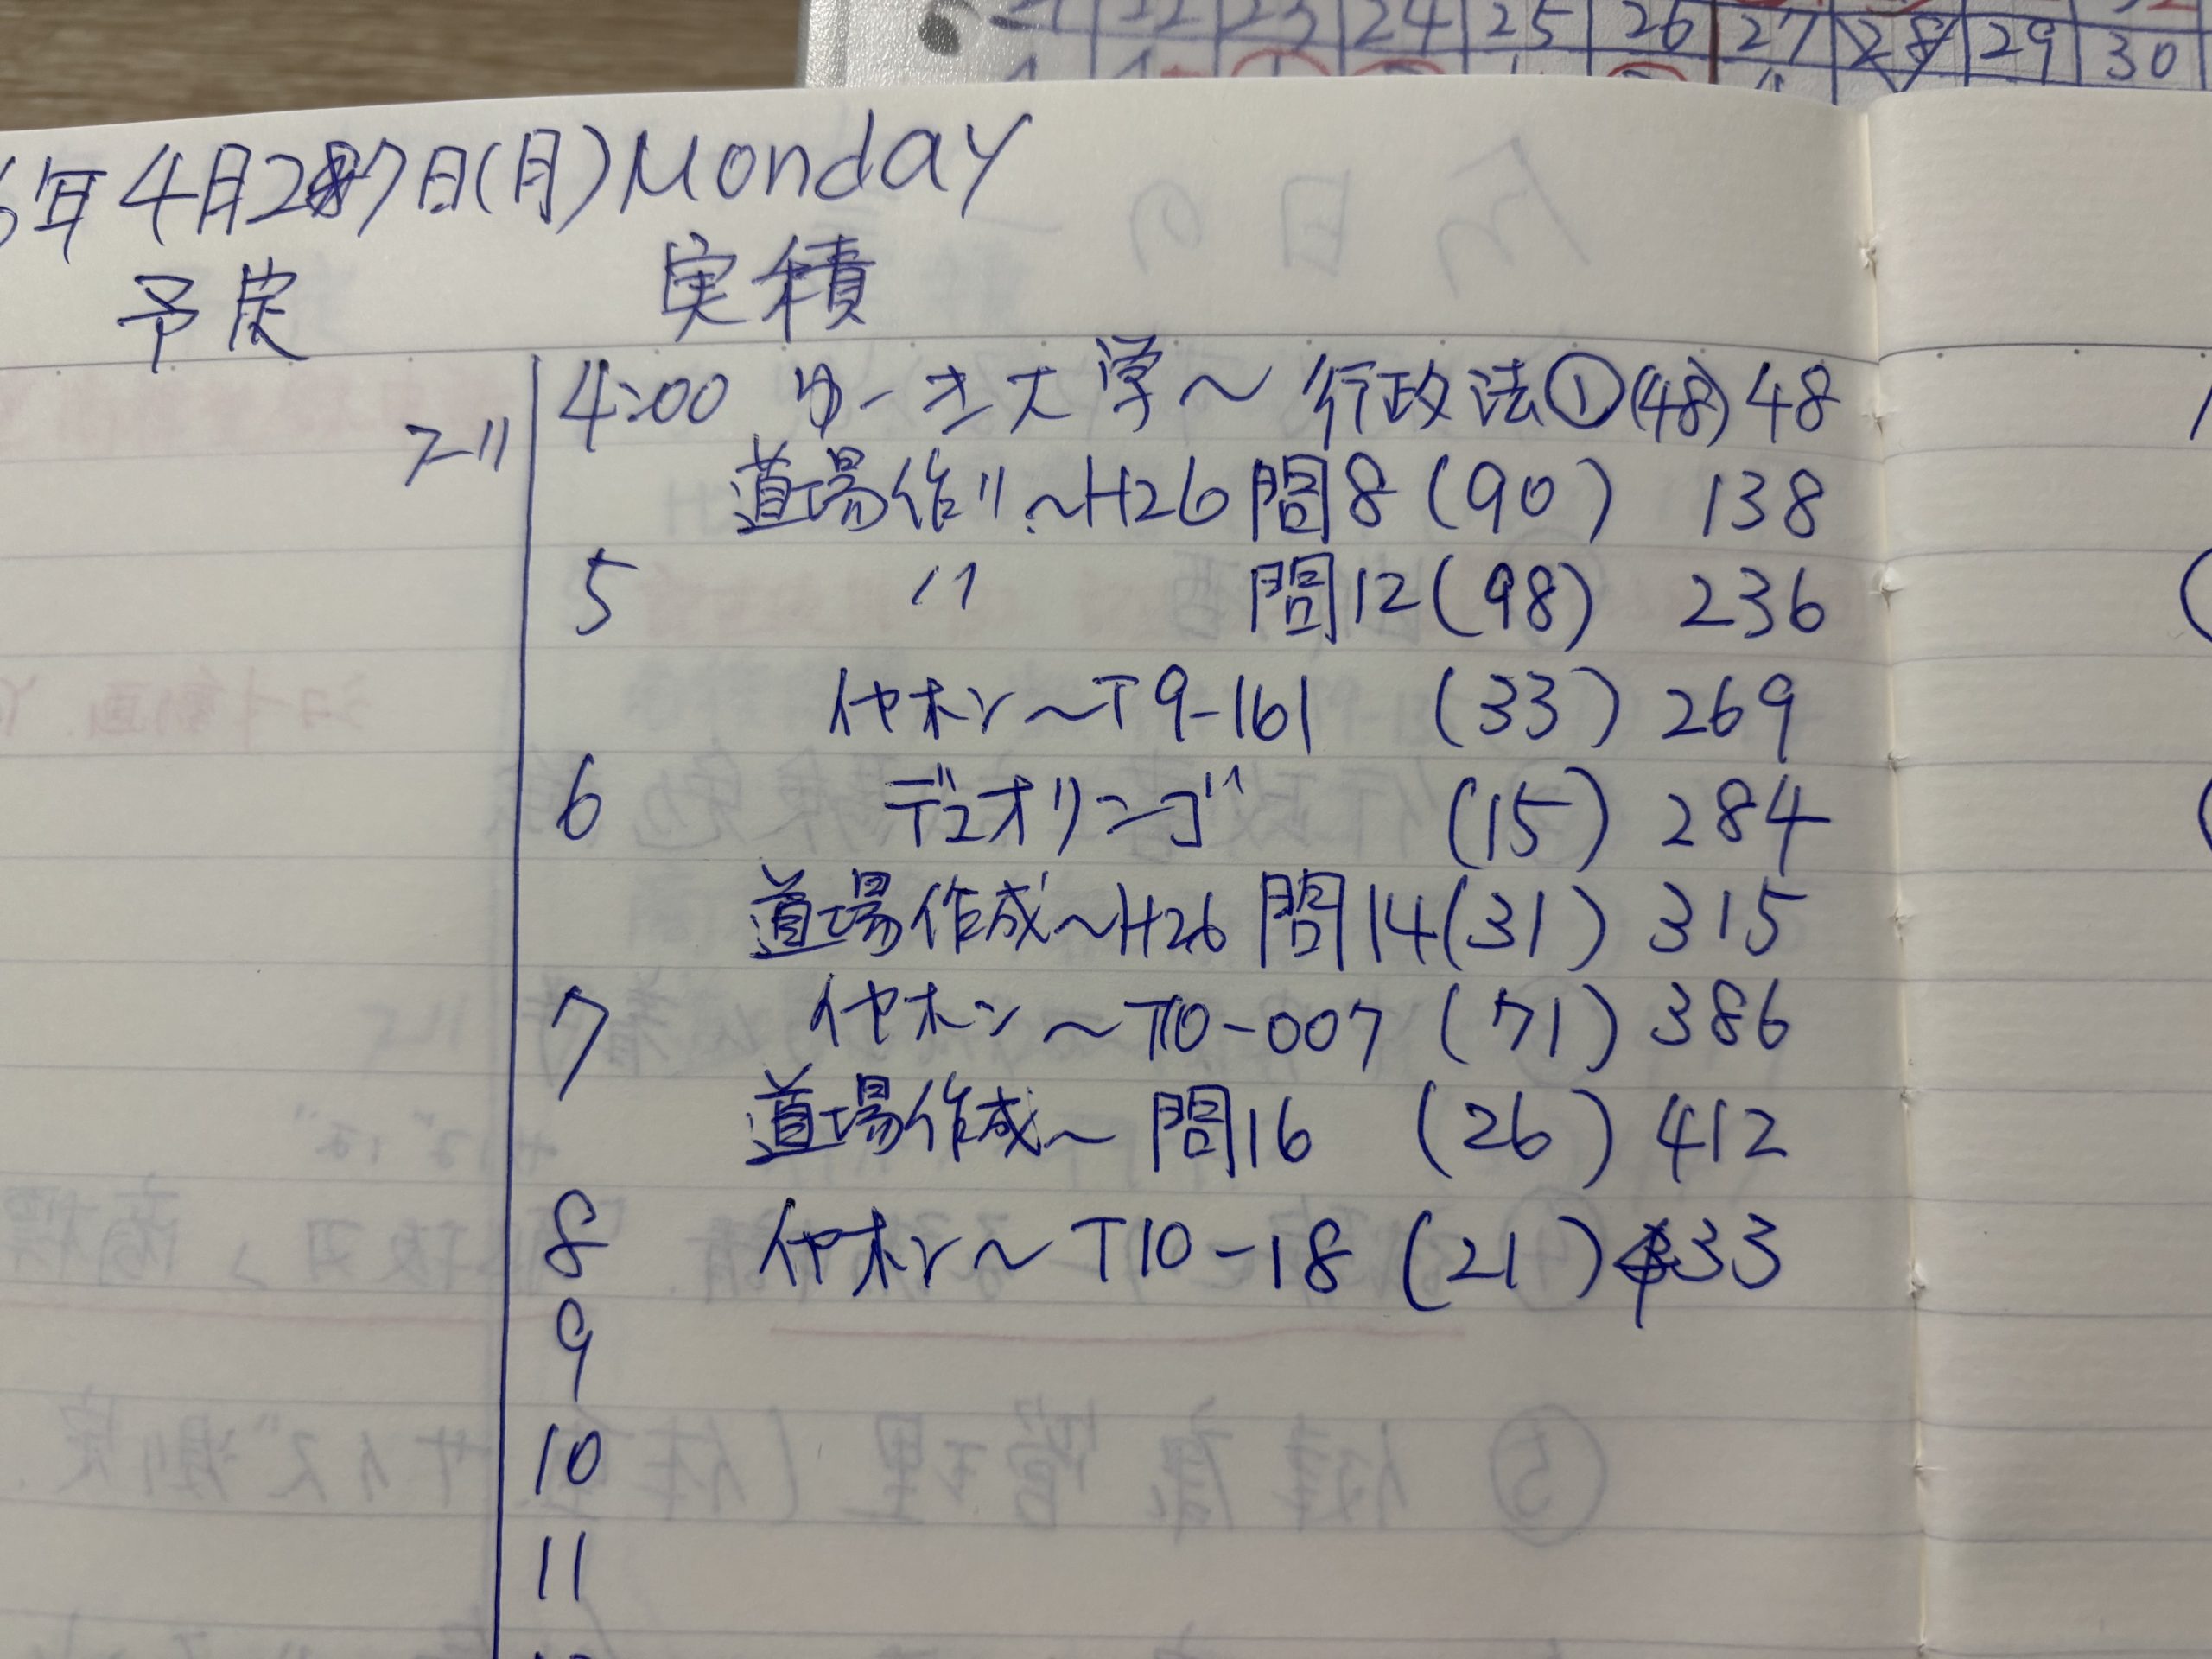 21 22 23 24 25 26 27 28 29 30
6年4月27日(月) Monday
予定 実積
4:00 ゆーき大学〜行政法①(48) 48
道場作り〜H26 問8 (90) 138
5 〃 問12 (98) 236
イヤホン〜T9-161 (33) 269
6 デュオリンゴ (15) 284
道場作成〜H26 問14 (31) 315
7 イヤホン〜T10-007 (71) 386
道場作成〜問16 (26) 412
8 イヤホン〜T10-18 (21) 433
9
10
11